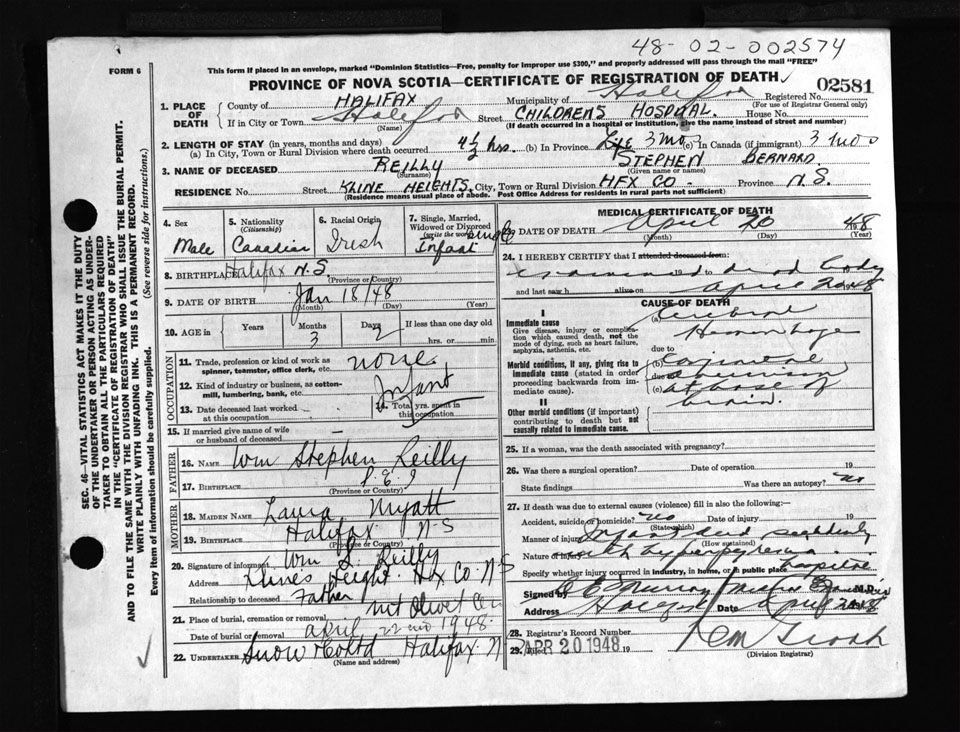 48-02-002574
FORM 6
This form if placed in an envelope, marked "Dominion Statistics—Free, penalty for improper use $300," and properly addressed will pass through the mail "FREE"
PROVINCE OF NOVA SCOTIA—CERTIFICATE OF REGISTRATION OF DEATH
02581
1. PLACE OF DEATH
County of HALIFAX
Municipality of Halifax
Registered No.
(For use of Registrar General only)
If in City or Town Halifax (Name)
Street CHILDRENS HOSPITAL. House No.
(If death occurred in a hospital or institution, give the name instead of street and number)
2. LENGTH OF STAY (in years, months and days)
(a) In City, Town or Rural Division where death occurred 4½ hrs. (b) In Province Life 3 mo (c) In Canada (if immigrant) 3 mo
3. NAME OF DECEASED REILLY STEPHEN BERNARD
(Surname) (Given name or names)
RESIDENCE No. Street KLINE HEIGHTS, City, Town or Rural Division HFX CO. Province N.S.
(Residence means usual place of abode. Post Office Address for residents in rural parts not sufficient)
4. Sex Male
5. Nationality (Citizenship) Canadian
6. Racial Origin Irish
7. Single, Married, Widowed or Divorced (write the word) Single Infant
8. BIRTHPLACE Halifax N.S.
(Province or Country)
9. DATE OF BIRTH Jan 18/48
(Month) (Day) (Year)
10. AGE in Years Months 3 Days 2 If less than one day old
hrs. or min.
OCCUPATION
11. Trade, profession or kind of work as spinner, teamster, office clerk, etc. none
12. Kind of industry or business, as cotton-mill, lumbering, bank, etc. Infant
13. Date deceased last worked at this occupation
14. Total yrs. spent in this occupation
15. If married give name of wife or husband of deceased –
FATHER
16. NAME Wm Stephen Reilly
17. BIRTHPLACE P.E.I
(Province or Country)
MOTHER
18. MAIDEN NAME Laura Myatt
19. BIRTHPLACE Halifax N-S
(Province or Country)
20. Signature of informant Wm S. Reilly
Address Klines Height Hx Co. N-S
Relationship to deceased Father
21. Place of burial, cremation or removal Mt Olivet Cem
Date of burial or removal April 22nd 1948.
22. UNDERTAKER Snow & Co Ltd Halifax N-S
(Name and address)
MEDICAL CERTIFICATE OF DEATH
DATE OF DEATH April 20 48
(Month) (Day) (Year)
24. I HEREBY CERTIFY that I attended deceased from:
examined 19 dead body
and last saw h alive on April 20 1948
CAUSE OF DEATH
I
Immediate cause
Give disease, injury or complication which caused death, not the mode of dying, such as heart failure, asphyxia, asthenia, etc.
(a) Cerebral
Hemorrhage
due to
Morbid conditions, if any, giving rise to immediate cause (stated in order proceeding backwards from immediate cause).
(b) Congenital
due to aneurism
(c) at base of
brain.
II
Other morbid conditions (if important) contributing to death but not causally related to immediate cause.
25. If a woman, was the death associated with pregnancy?
26. Was there a surgical operation? Date of operation 19
State findings Was there an autopsy? no
27. If death was due to external causes (violence) fill in also the following:—
Accident, suicide or homicide? no Date of injury 19
(State which)
Manner of injury Infant died suddenly
(How sustained)
Nature of injury with hyperpyrexia
Specify whether injury occurred in industry, in home, or in public place hospital
Signed by Medical Examiner M.D.
Address Halifax Date April 20 1948
28. Registrar's Record Number
29. Filed APR 20 1948 19
(Division Registrar)
SEC. 46—VITAL STATISTICS ACT MAKES IT THE DUTY OF THE UNDERTAKER OR PERSON ACTING AS UNDERTAKER TO OBTAIN ALL THE PARTICULARS REQUIRED IN THE "CERTIFICATE OF REGISTRATION OF DEATH" AND TO FILE THE SAME WITH THE DIVISION REGISTRAR WHO SHALL ISSUE THE BURIAL PERMIT.
WRITE PLAINLY WITH UNFADING INK. THIS IS A PERMANENT RECORD.
Every item of information should be carefully supplied. (See reverse side for instructions.)